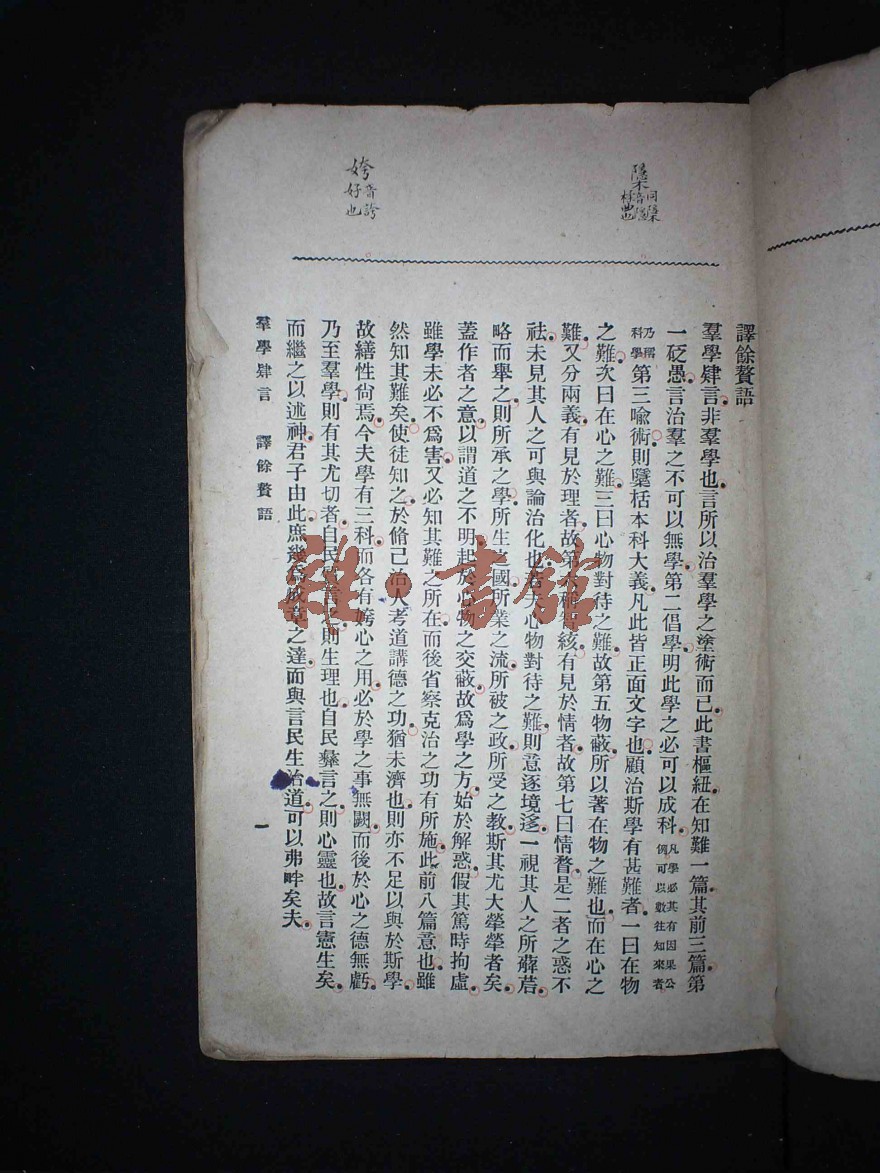 譯餘贅語
羣學肄言非羣學也言所以治羣學之塗術而已此書樞紐在知難一篇其前三篇第
一砭愚言治羣之不可以無學第二倡學明此學之必可以成科凡學必其有因果公例可以數往知來者
乃稱科學第三喩術則檃栝本科大義凡此皆正面文字也顧治斯學有甚難者一曰在物
之難次曰在心之難三曰心物對待之難故第五物蔽所以著在物之難也而在心之
難又分兩義有見於理者故第六曰智絃有見於情者故第七曰情瞀是二者之惑不
祛未見其人之可與論治化也若夫心物對待之難則意逐境迻一視其人之所薛莒
略而舉之則所承之學所生之國所業之流所破之政所受之教斯其尤大犖犖者矣
蓋作者之意以謂道之不明起於心物之交蔽故爲學之方始於解惑假其篤時拘虛
雖學未必不爲害又必知其難之所在而後省察克治之功有所施此前八篇意也雖
然知其難矣使徒知之於脩己治人考道講德之功猶未濟也則亦不足以與於斯學
故繕性尙焉今夫學有三科而各有姱心之用必於學之事無闕而後於心之德無虧
乃至羣學則有其尤切者自民質言之則生理也自民彝言之則心靈也故言憲生矣
而繼之以述神君子由此庶幾爲成章之達而與言民生治道可以弗畔矣夫
羣學肄言 譯餘贅語 一
姱音誇
好也